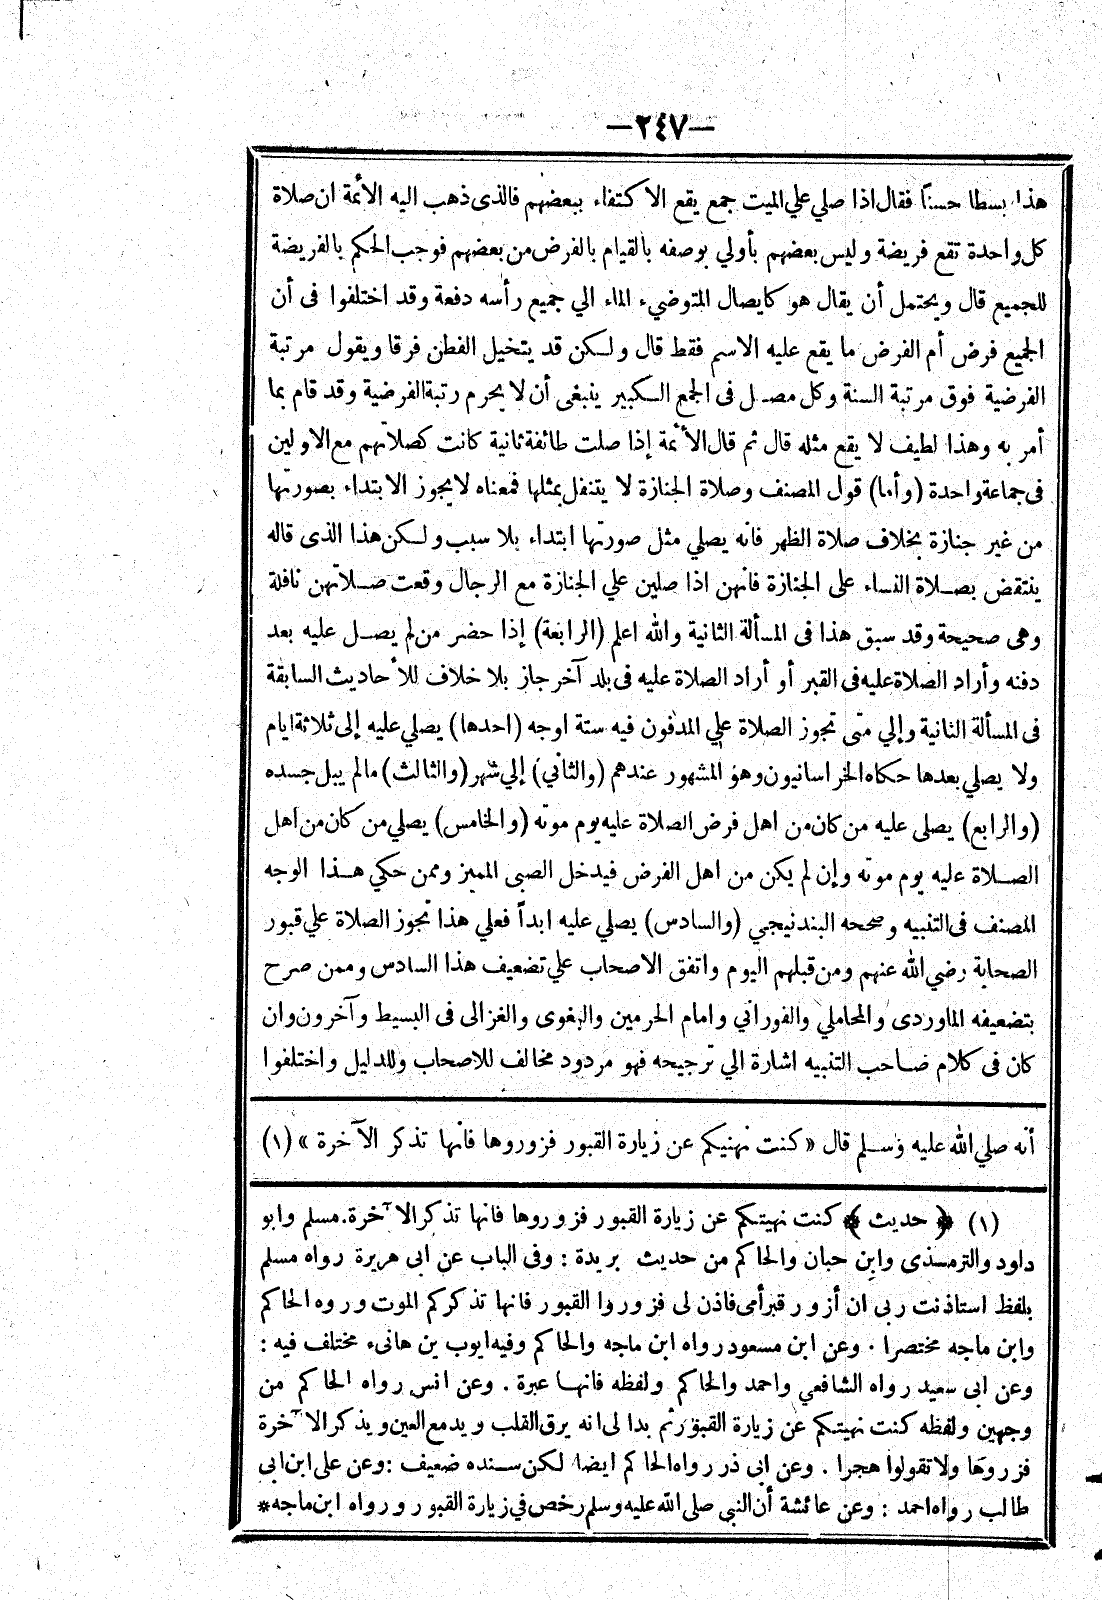 —٢٤٧—
هذا بسطا حسنًا فقال اذا صلي علي الميت جمع يقع الاكتفاء ببعضهم فالذى ذهب اليه الأئمة ان صلاة
كل واحدة تقع فريضة وليس بعضهم بأولي بوصفه بالقيام بالفرض من بعضهم فوجب الحكم بالفريضة
للجميع قال ويحتمل أن يقال هو كايصال المتوضيء الماء الي جميع رأسه دفعة وقد اختلفوا فى أن
الجميع فرض أم الفرض ما يقع عليه الاسم فقط قال ولكن قد يتخيل الفطن فرقا ويقول مرتبة
الفرضية فوق مرتبة السنة وكل مصل فى الجمع الكبير ينبغى أن لا يحرم رتبة الفرضية وقد قام بما
أمر به وهذا لطيف لا يقع مثله قال ثم قال الأئمة إذا صلت طائفة ثانية كانت كصلاتهم مع الاولين
فى جماعة واحدة (وأما) قول المصنف وصلاة الجنازة لا يتنفل بمثلها فمعناه لا يجوز الابتداء بصورتها
من غير جنازة بخلاف صلاة الظهر فانه يصلي مثل صورتها ابتداء بلا سبب ولكن هذا الذى قاله
ينتقض بصلاة النساء على الجنازة فانهن اذا صلين علي الجنازة مع الرجال وقعت صلاتهن نافلة
وهى صحيحة وقد سبق هذا فى المسألة الثانية والله اعلم (الرابعة) إذا حضر من لم يصل عليه بعد
دفنه وأراد الصلاة عليه فى القبر أو أراد الصلاة عليه فى بلد آخر جاز بلا خلاف للأحاديث السابقة
فى المسألة الثانية وإلي متى تجوز الصلاة علي المدفون فيه ستة اوجه (احدها) يصلي عليه إلى ثلاثة ايام
ولا يصلي بعدها حكاه الخراسانيون وهو المشهور عندهم (والثاني) إلي شهر (والثالث) مالم يبل جسده
(والرابع) يصلى عليه من كان من اهل فرض الصلاة عليه يوم موته (والخامس) يصلي من كان من اهل
الصلاة عليه يوم موته وإن لم يكن من اهل الفرض فيدخل الصبى المميز وممن حكي هذا الوجه
المصنف فى التنبيه وصححه البندنيجي (والسادس) يصلي عليه ابداً فعلي هذا تجوز الصلاة علي قبور
الصحابة رضي الله عنهم ومن قبلهم اليوم واتفق الاصحاب علي تضعيف هذا السادس وممن صرح
بتضعيفه الماوردى والمحاملي والفوراني وامام الحرمين والبغوى والغزالى فى البسيط وآخرون وان
كان فى كلام صاحب التنبيه اشارة الي ترجيحه فهو مردود مخالف للاصحاب وللدليل واختلفوا
أنه صلي الله عليه وسلم قال «كنت نهيتكم عن زيارة القبور فزوروها فانها تذكر الآخرة» (١)
(١) ﴿حديث﴾ كنت نهيتكم عن زيارة القبور فزوروها فانها تذكر الآخرة. مسلم وابو
داود والترمذى وابن حبان والحاكم من حديث بريدة : وفى الباب عن ابى هريرة رواه مسلم
بلفظ استاذنت ربى ان أزور قبر أمى فاذن لى فزوروا القبور فانها تذكركم الموت وروه الحاكم
وابن ماجه مختصرا . وعن ابن مسعود رواه ابن ماجه والحاكم وفيه ايوب بن هانىء مختلف فيه :
وعن ابى سعيد رواه الشافعي واحمد والحاكم ولفظه فانها عبرة . وعن انس رواه الحاكم من
وجهين ولفظه كنت نهيتكم عن زيارة القبور ثم بدا لى انه يرق القلب ويدمع العين ويذكر الآخرة
فزروها ولا تقولوا هجرا . وعن ابى ذر رواه الحاكم ايضا لكن سنده ضعيف : وعن على ابن ابى
طالب رواه احمد : وعن عائشة أن النبي صلى الله عليه وسلم رخص في زيارة القبور ورواه ابن ماجه*